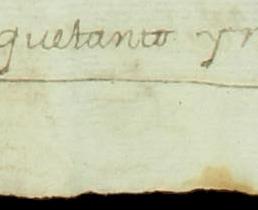 quetanto yn